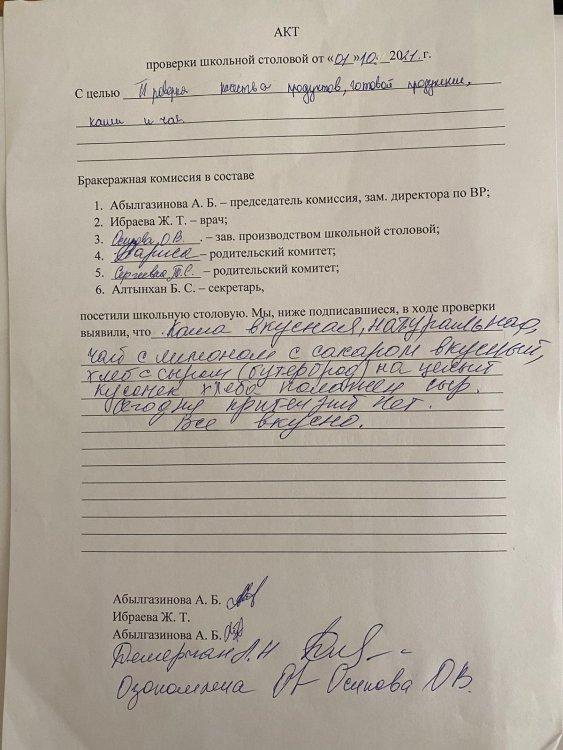 АКТ
проверки школьной столовой от «01» 10. 2021. г.
С целью Проверка качества продуктов, готовой продукции,
каши и чая.
Бракеражная комиссия в составе
1. Абылгазинова А. Б. – председатель комиссия, зам. директора по ВР;
2. Ибраева Ж. Т. – врач;
3. Осипова О.В. . – зав. производством школьной столовой;
4. Лариса – родительский комитет;
5. – родительский комитет;
6. Алтынхан Б. С. – секретарь,
посетили школьную столовую. Мы, ниже подписавшиеся, в ходе проверки
выявили, что Каша вкусная, натуральная,
чай с лимоном с сахаром вкусный,
хлеб с сыром (бутерброд) на целый
кусочек хлеба положен сыр.
Сегодня притензий нет.
Все вкусно.
Абылгазинова А. Б.
Ибраева Ж. Т.
Абылгазинова А. Б.
Демерчан Л.Н
Осипова О В.